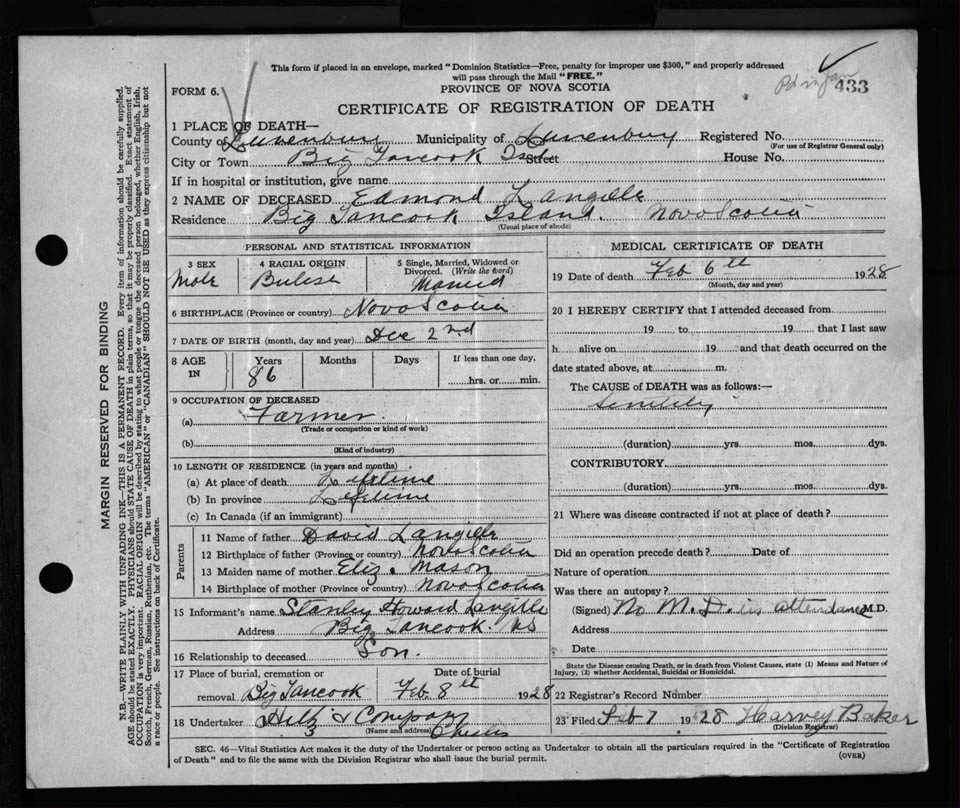 This form if placed in an envelope, marked "Dominion Statistics—Free, penalty for improper use $300," and properly addressed
will pass through the Mail "FREE."
433
FORM 6.
PROVINCE OF NOVA SCOTIA
CERTIFICATE OF REGISTRATION OF DEATH
1 PLACE OF DEATH—
County of Lunenburg Municipality of Lunenburg Registered No.
(For use of Registrar General only)
City or Town Big Tancook Isd Street House No.
If in hospital or institution, give name
2 NAME OF DECEASED Edmond Langille
Residence Big Tancook Island. Nova Scotia
(Usual place of abode)
PERSONAL AND STATISTICAL INFORMATION
3 SEX 4 RACIAL ORIGIN 5 Single, Married, Widowed or
Divorced. (Write the word)
Male Married
6 BIRTHPLACE (Province or country) Nova Scotia
7 DATE OF BIRTH (month, day and year) Dec 2nd
8 AGE IN Years Months Days If less than one day,
86 hrs. or min.
9 OCCUPATION OF DECEASED
(a) Farmer
(Trade or occupation or kind of work)
(b)
(Kind of industry)
10 LENGTH OF RESIDENCE (in years and months)
(a) At place of death Lifetime
(b) In province Lifetime
(c) In Canada (if an immigrant)
Parents
11 Name of father David Langille
12 Birthplace of father (Province or country) Nova Scotia
13 Maiden name of mother Eliz. Mason
14 Birthplace of mother (Province or country) Nova Scotia
15 Informant's name Stanley Howard Langille
Address Big Tancook. NS
16 Relationship to deceased Son.
17 Place of burial, cremation or Date of burial
removal Big Tancook Feb 8th 1928
18 Undertaker Hilts & Company
(Name and address) Chester
MEDICAL CERTIFICATE OF DEATH
19 Date of death Feb 6th 1928
(Month, day and year)
20 I HEREBY CERTIFY that I attended deceased from
19 to 19 that I last saw
h alive on 19 and that death occurred on the
date stated above, at m.
The CAUSE of DEATH was as follows:—
Senility
(duration) yrs. mos. dys.
CONTRIBUTORY
(duration) yrs. mos. dys.
21 Where was disease contracted if not at place of death?
Did an operation precede death? Date of
Nature of operation
Was there an autopsy?
(Signed) No M.D. in attendance M.D.
Address
Date
State the Disease causing Death, or in death from Violent Causes, state (1) Means and Nature of
Injury, (2) whether Accidental, Suicidal or Homicidal.
22 Registrar's Record Number
23 Filed Feb 7 1928 Harvey Baker
(Division Registrar)
SEC. 46—Vital Statistics Act makes it the duty of the Undertaker or person acting as Undertaker to obtain all the particulars required in the "Certificate of Registration
of Death" and to file the same with the Division Registrar who shall issue the burial permit.
(OVER)
MARGIN RESERVED FOR BINDING
N.B.—WRITE PLAINLY WITH UNFADING INK—THIS IS A PERMANENT RECORD. Every item of information should be carefully supplied.
AGE should be stated EXACTLY. PHYSICIANS should STATE CAUSE OF DEATH in plain terms, so that it may be properly classified. Exact statement of
OCCUPATION is very important. RACIAL ORIGIN will be described by stating to what people or tongue the deceased person belonged, whether English, Irish,
Scotch, French, German, Russian, Ruthenian, etc. The terms "AMERICAN" or "CANADIAN" SHOULD NOT BE USED as they express citizenship but not
a race or people. See instructions on back of Certificate.